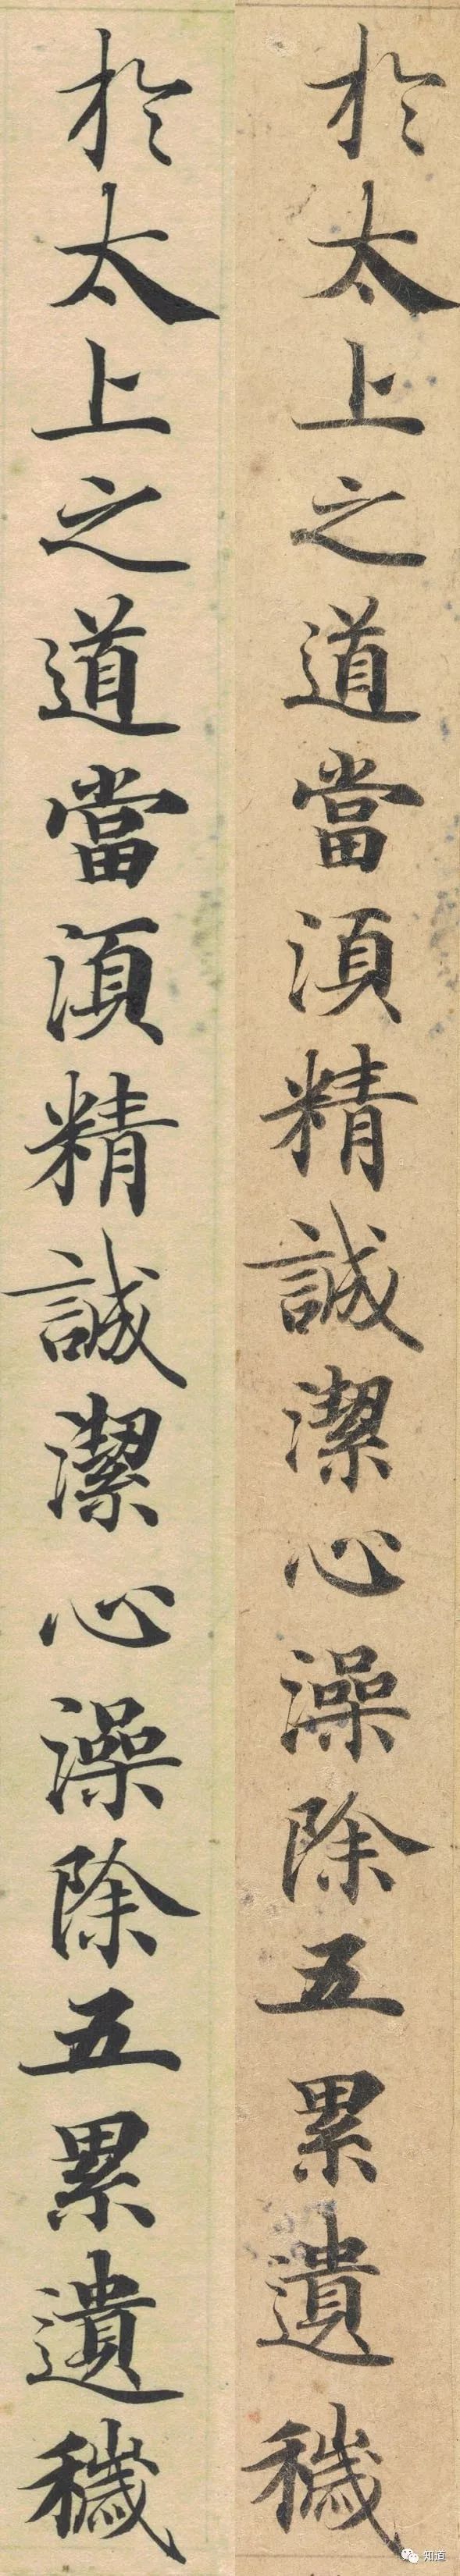 於太上之道當湏精誠潔心澡除五累遺穢
於太上之道當湏精誠潔心澡除五累遺穢
知道